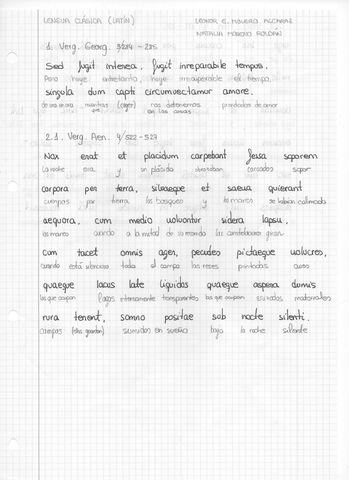 LENGUA CLÁSICA (LATÍN)
LEONOR E. MOLERO ALCARAZ
NATALIA MORENO ROLDÁN
1. Verg. Georg. 3/284 - 285
Sed fugit interea, fugit irreparabile tempus,
Pero huye entretanto, huye irrecuperable el tiempo,
singula dum capti circumvectamur amore.
mientras (coger) nos detenemos prendados de amor
en las cosas
2. Verg. Aen. 4/522 - 527
Nox erat et placidum carpebant fessa soporem
La noche era y un plácido cansados sopor
corpora per terras, silvaeque et saeva quierant
cuerpos por tierra, los bosques y los mares se habían calmado
aequora, cum medio volvontur sidera lapsu,
los mares cuando a la mitad de su recorrido las constelaciones giran
cum tacet omnis ager, pecudes pictaeque volucres,
cuando está silencioso todo el campo las reses pintadas aves
quaeque lacus late liquidos quaeque aspera dumis
las que ocupan lagos intensamente transparentes las que ocupan erizados matorrales
rura tenent, somno positae sub nocte silenti.
campos sumidos en sueño bajo la noche silente